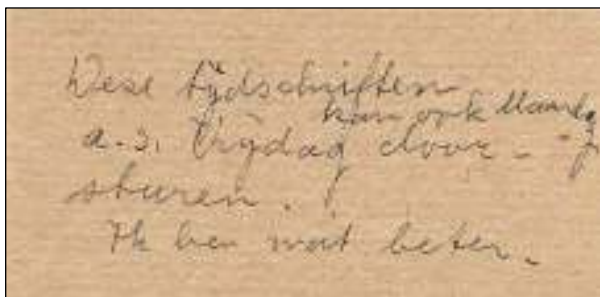 Deze tijdschriften
kan ook Maandag
a.s. Vrijdag door-
sturen.
Ik ben wat beter.